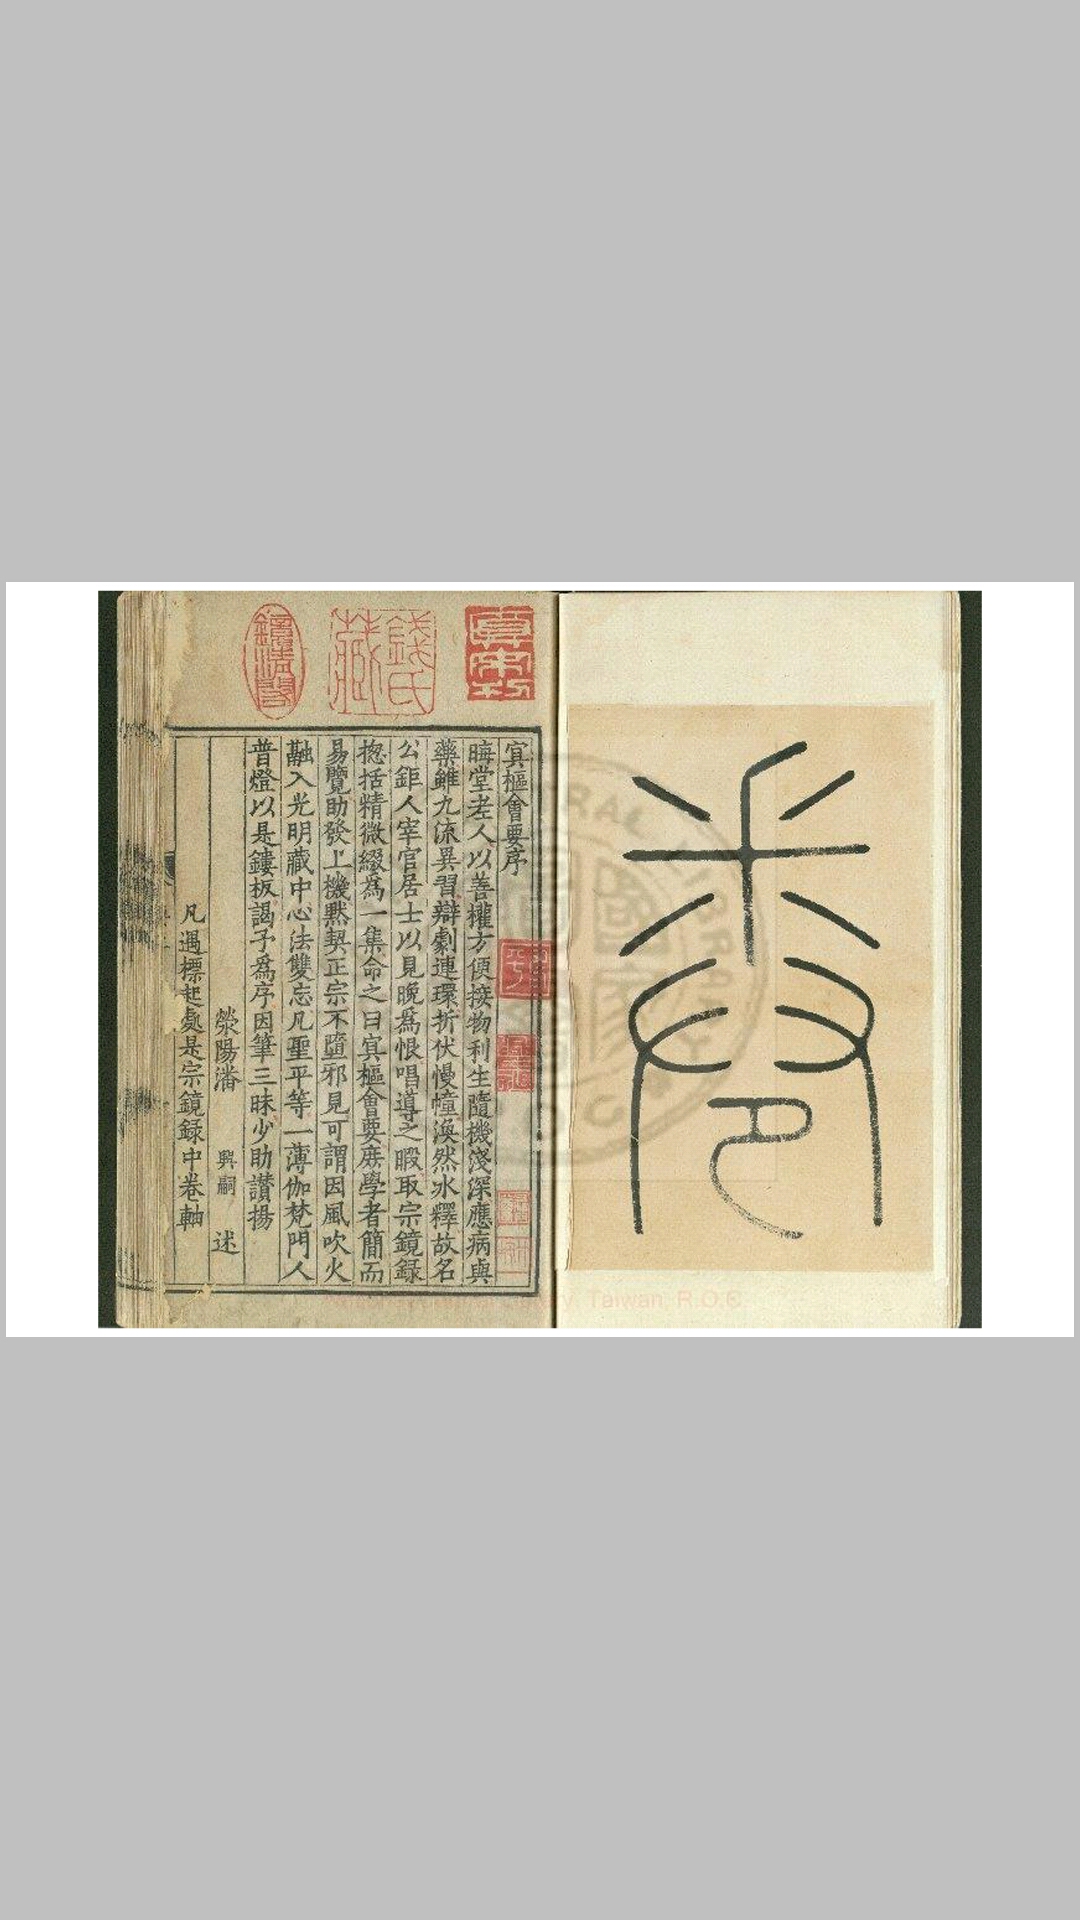 卷
冥樞會要序
晦堂老人以善權方便接物利生隨機淺深應病與
藥雖九流異習辯劇連環折伏慢幢渙然氷釋故名
公鉅人宰官居士以見晚為恨唱導之暇取宗鏡錄
揔括精微綴為一集命之曰冥樞會要庶學者簡而
易覽助發上機黙契正宗不墮邪見可謂因風吹火
融入光明藏中心法雙忘凡聖平等一薄伽梵門人
普燈以是鏤板謁予為序因筆三昧少助讃揚
滎陽潘 興嗣 述
凡遇標起處是宗鏡録中卷軸
錢氏藏
Taiwan, R.O.C